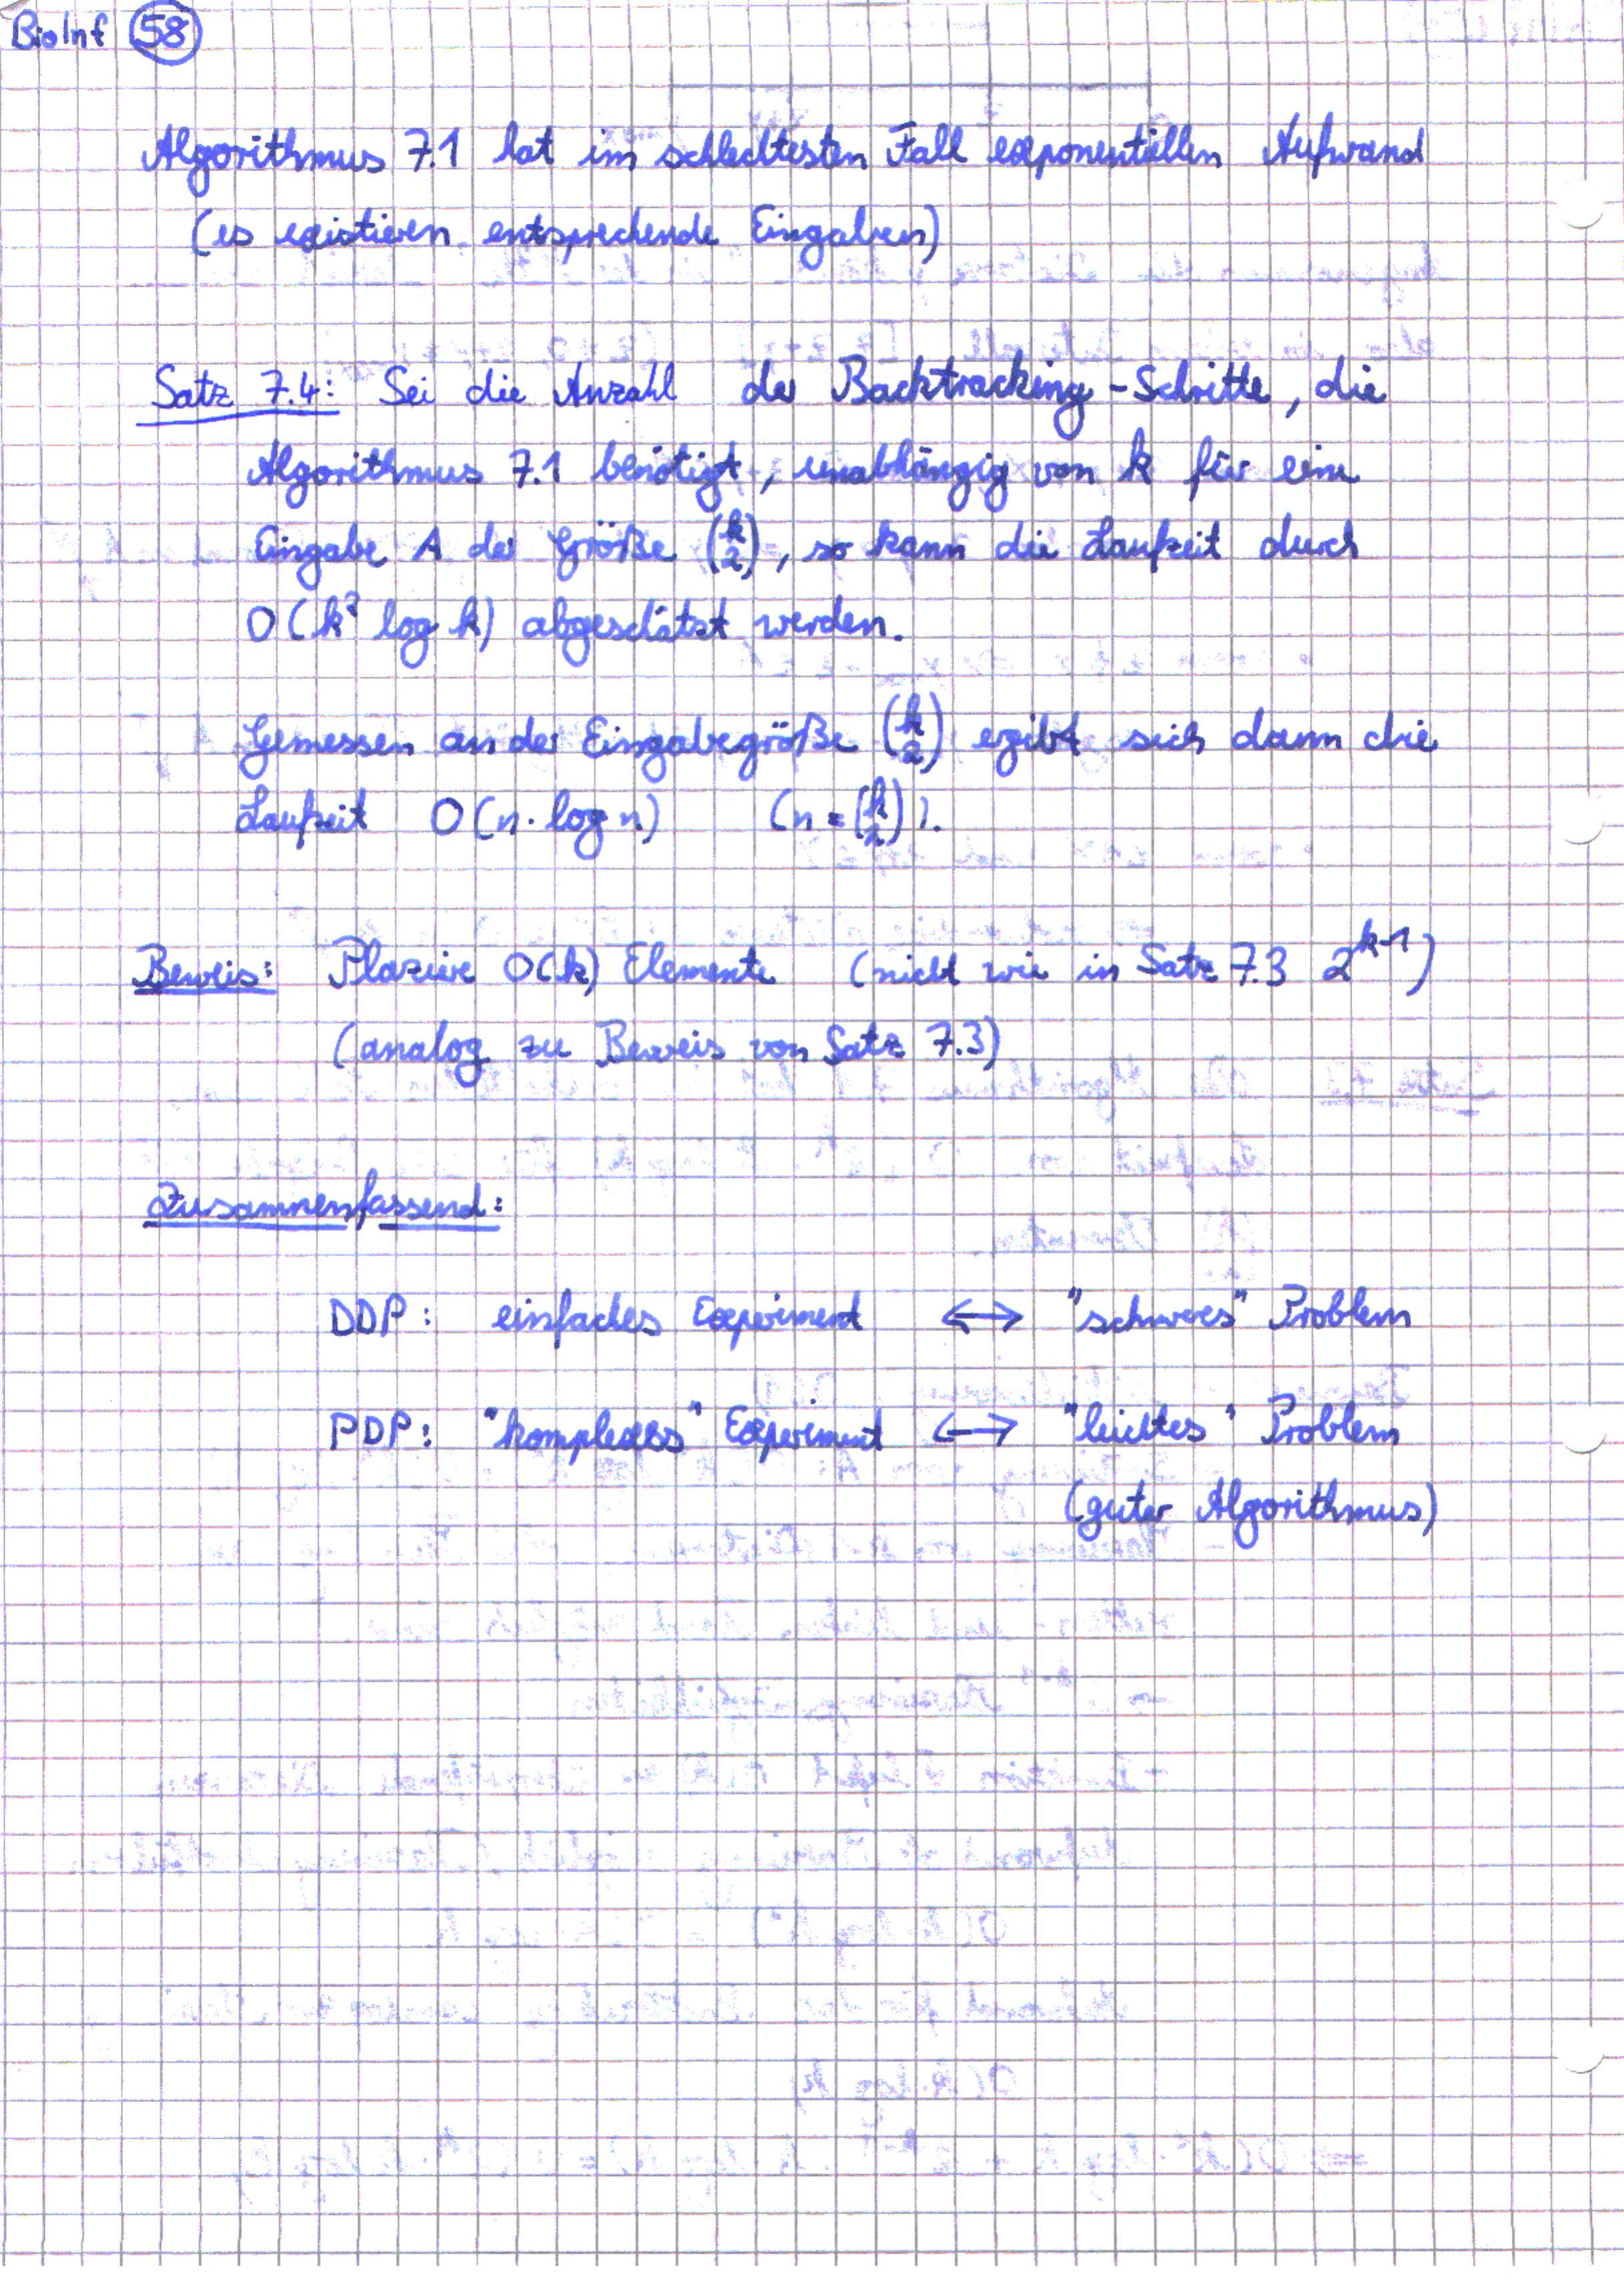 BioInf 58
Algorithmus 7.1 hat im schlechtesten Fall exponentiellen Aufwand
(es existieren entsprechende Eingaben)
Satz 7.4: Sei die Anzahl der Backtracking-Schritte, die
Algorithmus 7.1 benötigt, unabhängig von k für eine
Eingabe A der Größe (k 2), so kann die Laufzeit durch
O(k² log k) abgeschätzt werden.
Gemessen an der Eingabegröße (k 2) ergibt sich dann die
Laufzeit O(n · log n) (n = (k 2)).
Beweis: Plaziere O(k) Elemente (nicht wie in Satz 7.3 2^{k-1})
(analog zu Beweis von Satz 7.3)
Zusammenfassend:
DDP: einfaches Experiment ↔ "schweres" Problem
PDP: "komplexes" Experiment ↔ "leichtes" Problem
(guter Algorithmus)